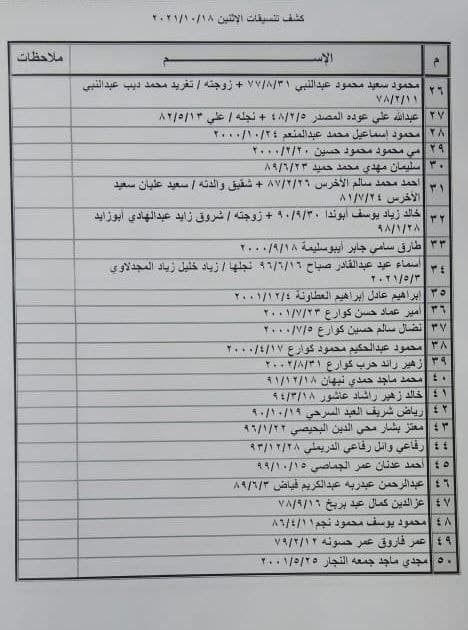 كشف تنسيقات الاثنين ٢٠٢١/١٠/١٨
م الإســـــــم ملاحظات
٢٦ محمود سعيد محمود عبدالنبي ٧٧/٨/٣١ + زوجته / تغريد محمد ديب عبدالنبي
٧٨/٢/١١
٢٧ عبدالله علي عوده المصدر ٤٨/٢/٥ + نجله / علي ٨٢/٥/١٣
٢٨ محمود إسماعيل محمد عبدالمنعم ٢٠٠٠/١٠/٢٤
٢٩ مي محمود محمود حسين ٢٠٠٠/٢/٢٠
٣٠ سليمان مهدي محمد حميد ٨٩/٦/٢٣
٣١ احمد محمد سالم الأخرس ٨٧/٢/٢٦ + شقيق والدته / سعيد عليان سعيد
الأخرس ٨١/٧/٢٤
٣٢ خالد زياد يوسف أبوندا ٩٠/٩/٣٠ + زوجته / شروق زايد عبدالهادي أبوزايد
٩٨/١/٢٨
٣٣ طارق سامي جابر أبيوسليمة ٢٠٠٠/٩/١٨
٣٤ اسماء عيد عبدالقادر صباح ٩٦/٦/١٦ نجلها / زياد خليل زياد المجدلاوي
٢٠٢١/٥/٣
٣٥ إبراهيم عادل إبراهيم العطاونة ٢٠٠١/١٢/٤
٣٦ أمير عماد حسن كوارع ٢٠٠١/٧/٢٣
٣٧ نضال سالم حسين كوارع ٢٠٠٠/٧/٥
٣٨ محمود عبدالحكيم محمود كوارع ٢٠٠٠/٤/١٧
٣٩ زهير رائد حرب كوارع ٢٠٠٢/٨/٣١
٤٠ محمد ماجد حمدي نبهان ٩١/١٢/١٨
٤١ خالد زهير راشاد عاشور ٩٤/٣/١٨
٤٢ رياض شريف العبد السرحي ٩٠/١٠/١٩
٤٣ معتز بشار محي الدين البحيصي ٩٦/١/٢٢
٤٤ رفاعي وائل رفاعي الدريملي ٩٣/١٢/٢٨
٤٥ احمد عدنان عمر الجماصي ٩٩/١٠/١٥
٤٦ عبدالرحمن عبدربه عبدالكريم فياض ٨٩/٦/٣
٤٧ عزالدين كمال عبد بريخ ٧٨/٩/١٦
٤٨ محمود يوسف محمود نجم ٨٦/٤/١١
٤٩ عمر فاروق عمر حسونه ٧٩/٢/١٢
٥٠ مجدي ماجد جمعه النجار ٢٠٠١/٥/٢٥